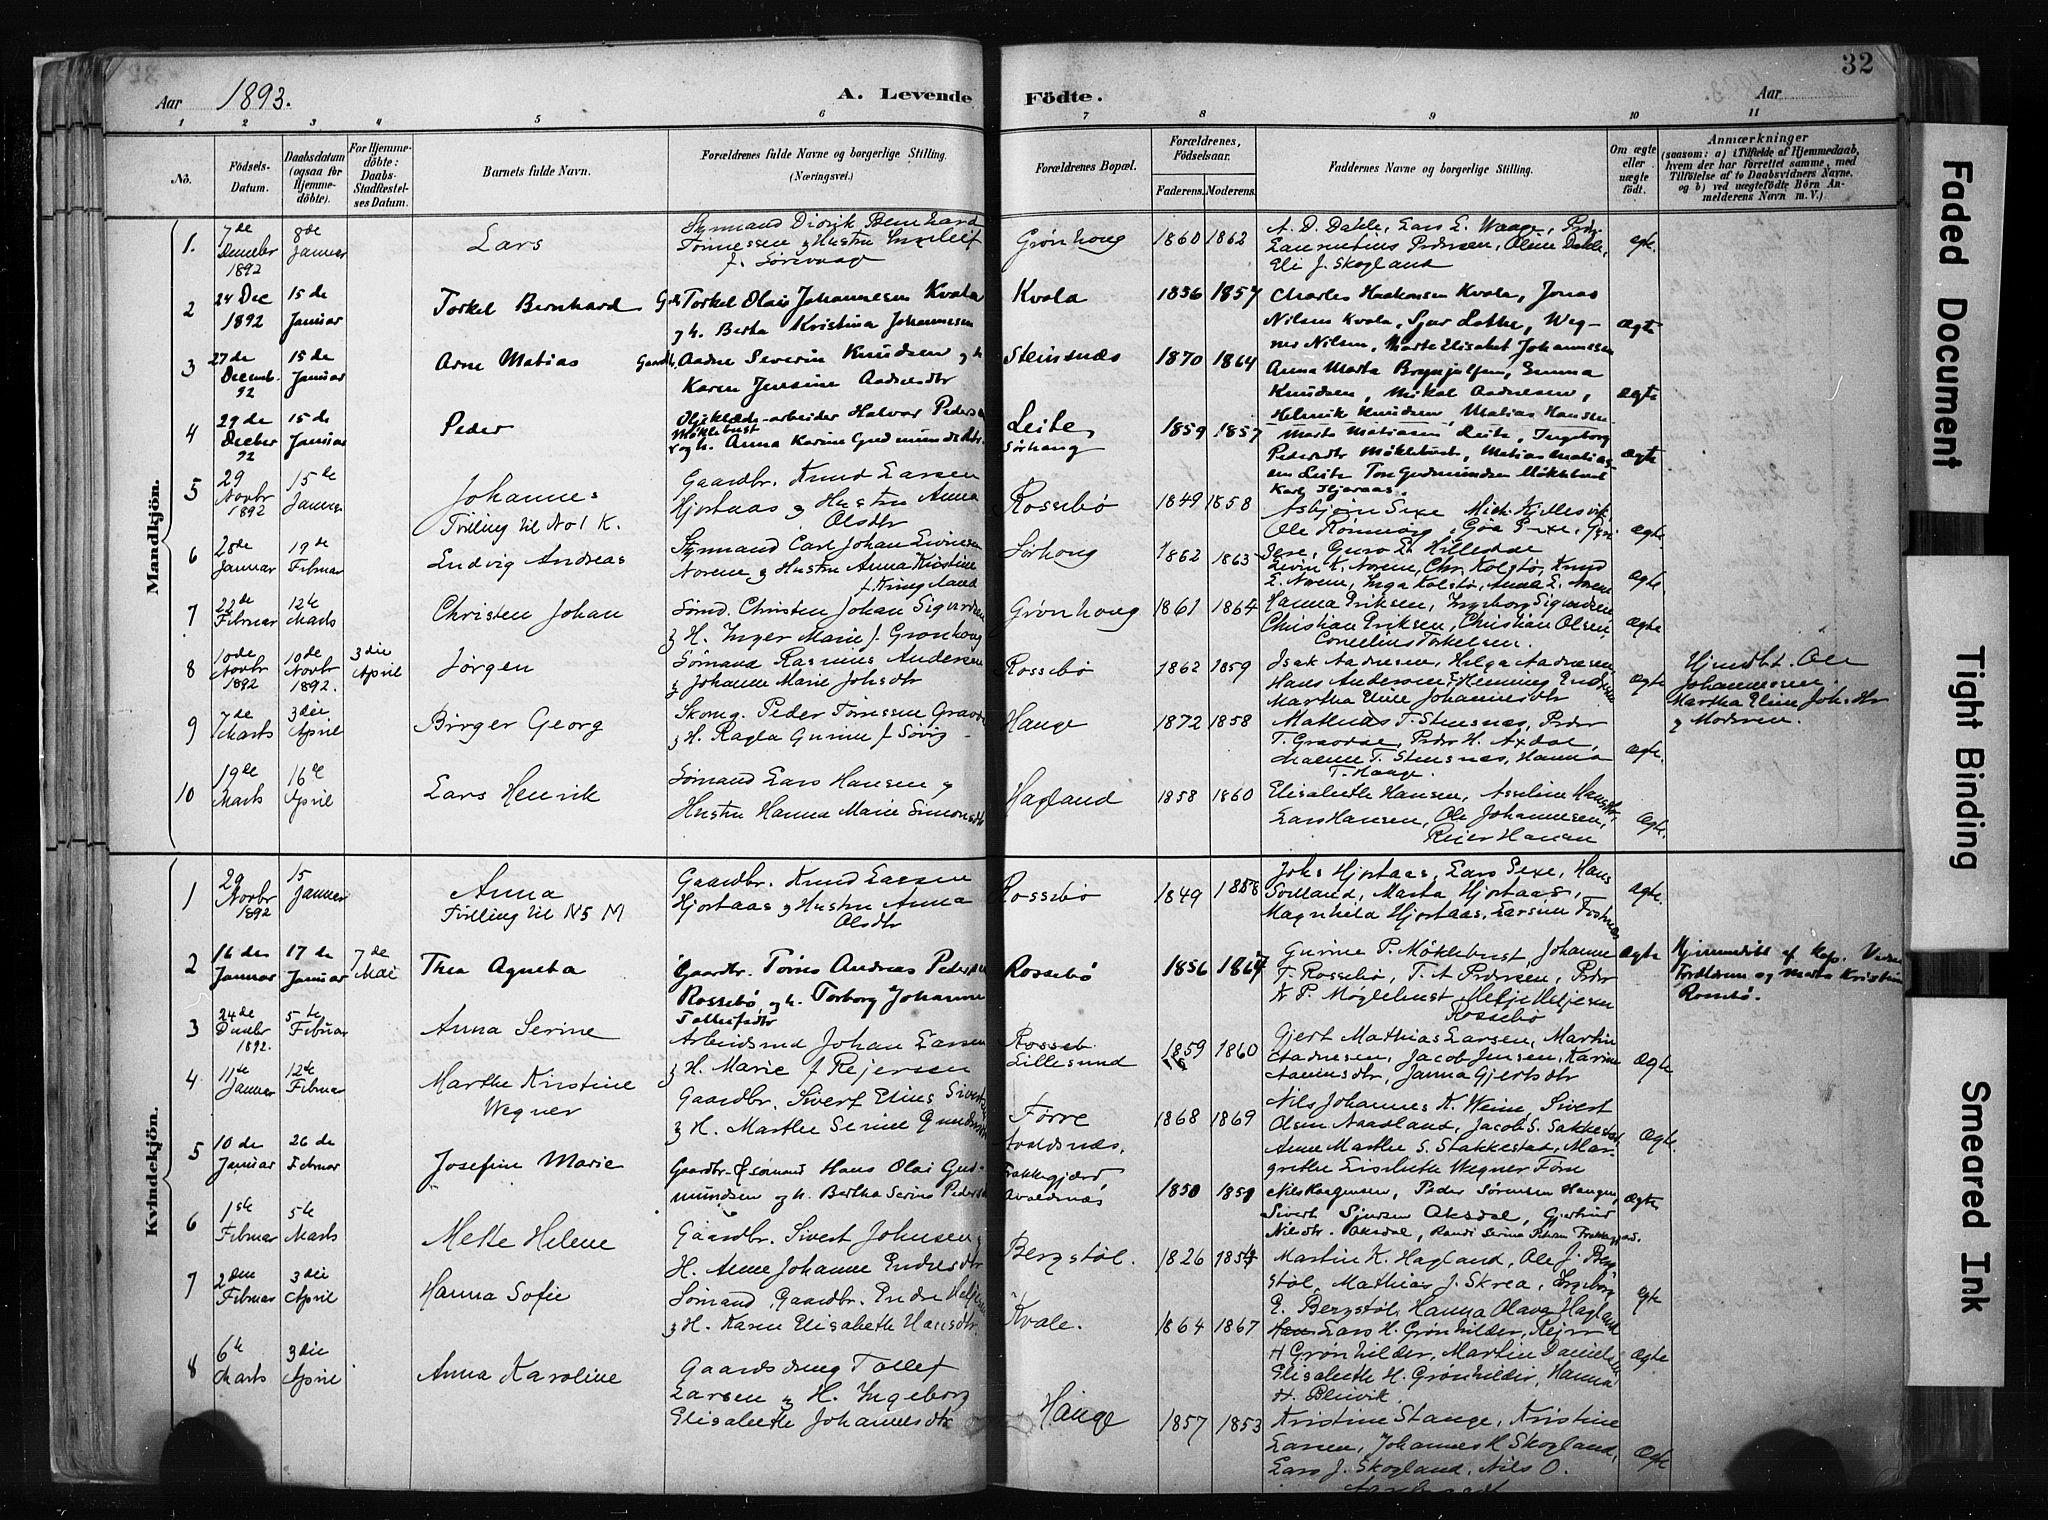 32
Aar 1893.
A. Levende Födte.
Aar
1 2 3 4 5 6 7 8 9 10 11
No.
Födsels-Datum.
Daabsdatum (ogsaa for Hjemmedöbte).
For Hjemmedöbte: Daabs-Stadfæstelses Datum.
Barnets fulde Navn.
Forældrenes fulde Navne og borgerlige Stilling. (Næringsvei.)
Forældrenes Bopæl.
Forældrenes, Födselsaar.
Faderens. Moderens.
Faddernes Navne og borgerlige Stilling.
Om ægte eller uægte födt.
Anmærkninger (saasom: a) i Tilfælde af Hjemmedaab, hvem der har forrettet samme, med Tilföielse af to Daabsvidners Navne, og b) ved uægtefödte Börn Anmelderens Navn m. V.)
Mandkjön.
1. 7de Decmbr 1892 8de Januar Lars
Styrmand Didrik Bernhard
Tønnessen & Hustru
f. Sørevaag
Grønhoug 1860 1862
A. D. Dahle, Lars E. Waage, Peder
Laurentius Pedersen, Oline Dahle,
Eli J. Skogland
Ægte.
2 24 Dec 1892 15de Januar Torkel Bernhard
Gbr Torkel Olais Johannesen Kvala
og h. Berta Kristina Johannesen
Kvala 1856 1857
Charles Haakonsen Kvala, Jonas
Nilsen Kvala, Sjur Lothe, Weg-
ner Nilsen, Marte Elisabet Johannesen
Ægte
3 27de Decemb. 92 15de Januar Arne Matias
Gaardb. Aadne Severin Knudsen og h
Karen Jensine Aadnesdtr
Steinsnæs 1870 1864
Anna Marta Brynjulfsen, Emma
Knudsen, Mikal Aadnesen,
Helmik Knudsen, Matias Hansen
Ægte
4 29de Decber 92 15de Januar Peder
Oljeklæde-arbeider Halvor Pedersen
Møklebust
og h. Anna Karine Gudmundsdtr.
Leite, Sørhaug 1859 1857
Marta Matiasen Leite, Ingeborg
Pedersdtr Møklebust, Matias Matias-
sen Leite Ton Gudmundsen Møklebust
Karl
Ægte
5 29 Novbr 1892 15de Januar Johannes
Tvilling til No 1 K.
Gaardbr. Knud Larsen
Hjortaas & Hustru Anna
Olsdtr
Rossebø 1849 1858
Asbjørn Sexe
Ole Rønnevig, Goa Sexe,
Sexe, Guro L. Hillesdal
Ægte.
6 28de Januar 19de Februar Ludvig Andreas
Styrmand Carl Johan
Norem & Hustru Anna Kristine
Sørhaug 1862 1863
K. Norem, Chr. Kolstø, Knud
E. Norem, Inga Kolstø, Anna E. Norem
Ægte
7 22de Februar 12te Marts Christen Johan
Sømd. Christen Johan Sigurdsen
& H. Inger Marie f. Grønhoug
Grønhoug 1861 1864
Hanna Eriksen, Ingeborg Sigurdsen
Christian Eriksen, Christian Olsen
Cornelius Torkelsen.
Ægte
8 10de Novbr 1892 10de Novbr 1892. 3die April Jørgen
Sømand Rasmus Andersen
& Johanne Marie Johsdtr
Rossebø 1862 1859
Isak Aadnesen, Helga Aadnesen,
Hans Andersen, Henning
Martha Eline Johannesdtr
Ægte
Hjmdbt. Ole
Johannessen.
Martha Eline Johsdtr
& Moderen.
9 7de Marts 3die April Birger Georg
Skomg. Peder Tønessen Graodal
& H. Ragla Gurine f. Sørig
Hauge 1872 1858
Mathias T. Stensnæs, Peder
T. Graodal, Peder H. Axdal,
Malene T. Stensnæs, Hanna
T. Hauge.
Ægte.
10 19de Marts 16de April Lars Henrik
Sømand Lars Hansen &
Hustru Hanna Marie Simonsdtr
Hagland 1858 1860
Elisabeth Hansen, Asseline Hansdtr
Lars Hansen, Ole Johannesen,
Reier Hansen
Ægte.
Kvindekjön.
1 29 Novbr 1892 15 Januar Anna
Tvilling til N5 M
Gaardbr. Knud Larsen
Hjortaas & Hustru Anna
Olsdtr
Rossebø 1849 1858
Johs Hjortaas, Lars Sexe, Hans
Sørland, Marta Hjortaas,
Magnhild Hjortaas, Larsine
Ægte.
2 16des Januar 17de Januar 7de Mai Thea Agneta
Gaardbr. Tønes Andreas Pedersen
Rossebø og h. Torborg Johanne
Tollefsdtr
Rossebø 1856 1867
Gurine P. Møklebust, Johanne
T. Rossebø, T. A Pedersen, Peder
N P. Møglebust Helje Heljesen
Rossebø
Ægte
Hjemmedøbt af Kap.
Forældrene og Marta Kristine
Rossebø.
3 24de Decmbr 1892. 5te Februar Anna Serine
Arbeidsmd Johan Larsen
& H. Marie f Rejersen
Rosseb. Lillesund 1859 1860
Gjert Mathias Larsen, Martin
Aadnesen, Jacob Jensen, Karine
Aanensdtr, Janna Gjertsdtr
Ægte
4 11te Januar 12te Februar Marthe Kristine
Wegner
Gaardbr. Sivert Elius Sivertsen
& H. Marthe Serine Gundersdtr
Førre Avaldsnæs. 1868 1869
Nils Johannes K. Weim, Sivert
Olsen Aradland, Jacob S. Stakkestad,
Anne Marthe S. Stakkestad, Mar-
grethe Lisebeth Wegner Førre
Ægte.
5 10de Januar 26de Februar Josefine Marie
Gaardbr. & sømand Hans Olai Gud-
mundsen og h. Bertha Serine Pedersdtr
Frakkegjerd, Avaldsnæs 1850 1851
Nils Kaagensen, Peder Sørensen Haugen,
Sivert Sjursen Aksdal, Gjertrud
Nilsdtr. Aksdal, Randi Serina
Ægte
6 1ste Februar 5te Marts Mette Helene
Gaardbr. Sivert Johnsen &
H. Anne Johanne Endresdtr
Bergstøl. 1826 1854
Martin K. Hagland, Ole J. Berg-
støl, Mathias J. Skrea, Ingeborg
E. Bergstøl, Hanna Olava Hagland
Ægte
7 2den Februar 3die April Hanna Sofie
Sømand, Gaardbr. Endre Heljesen
& H. Karen Elisabeth Hansdtr.
Kvale. 1864 1867
Lars H. Grønhilder, Rejer
H Grønhilder, Martin Danielsen
Elisabeth H. Grønhilder, Hanna
H. Bleivik.
Ægte
8 6te Marts 3die April Anna Karoline
Gaardsdreng Tollef
Larsen & H. Ingeborg
Elisabeth Johannesdtr
Hauge 1857 1853
Kristine Stange, Kristine
Larsen, Johannes H. Skogland,
Lars J. Skogland, Nils O.
Ægte
Faded Document
Tight Binding
Smeared Ink